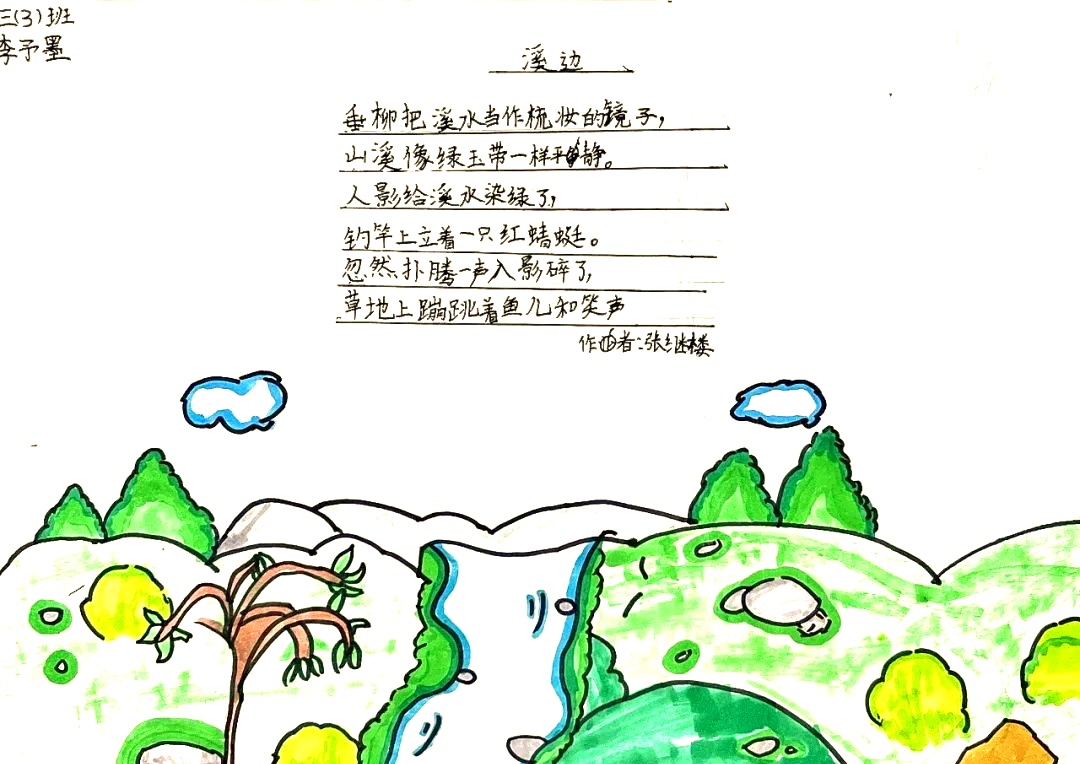 三(3)班
李予墨
溪边
垂柳把溪水当作梳妆的镜子,
山溪像绿玉带一样平静。
人影给溪水染绿了,
钓竿上立着一只红蜻蜓。
忽然扑腾一声人影碎了,
草地上蹦跳着鱼儿和笑声
作者:张继楼